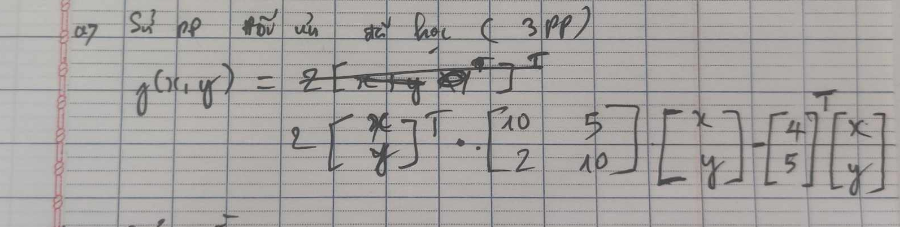 a) Sử pp tối ưu đã học ( 3 pp)
g(x, y) =
2 [x y]^T . [10 5 2 10] [x y] - [4 5]^T [x y]